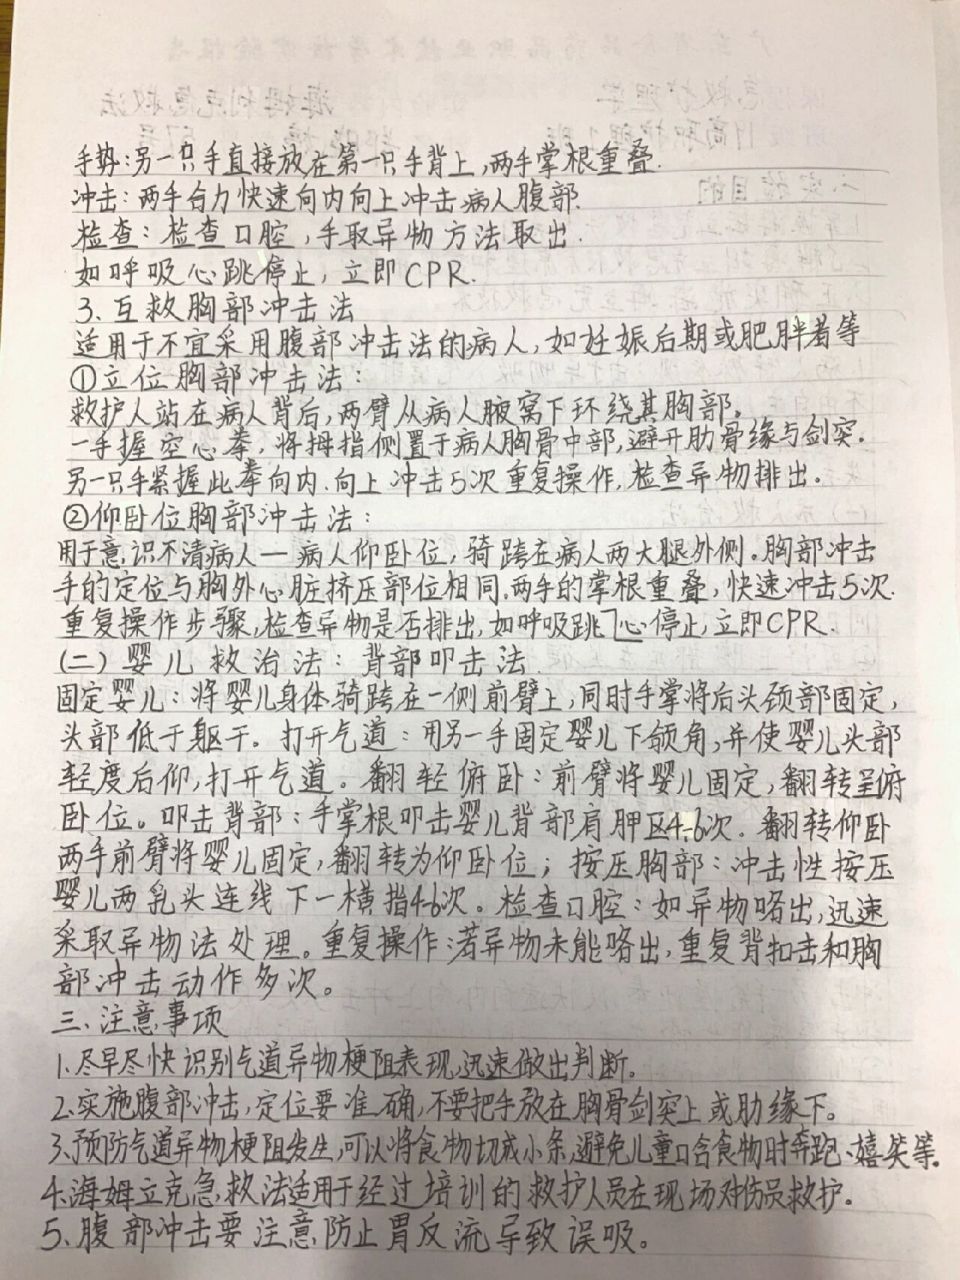 手势:另一只手直接放在第一只手背上,两手掌根重叠.
冲击:两手合力快速向内向上冲击病人腹部.
检查:检查口腔,手取异物方法取出.
如呼吸心跳停止,立即CPR.
3、互救胸部冲击法
适用于不宜采用腹部冲击法的病人,如妊娠后期或肥胖者等
①立位胸部冲击法:
救护人站在病人背后,两臂从病人腋窝下环绕其胸部。
一手握空心拳,将拇指侧置于病人胸骨中部,避开肋骨缘与剑突.
另一只手紧握此拳向内、向上冲击5次重复操作,检查异物排出。
②仰卧位胸部冲击法:
用于意识不清病人—病人仰卧位,骑跨在病人两大腿外侧。胸部冲击
手的定位与胸外心脏挤压部位相同,两手的掌根重叠,快速冲击5次.
重复操作步骤,检查异物是否排出,如呼吸跳心停止,立即CPR.
(二)婴儿救治法:背部叩击法
固定婴儿:将婴儿身体骑跨在一侧前臂上,同时手掌将后头颈部固定,
头部低于躯干。打开气道:用另一手固定婴儿下颌角,并使婴儿头部
轻度后仰,打开气道。翻轻俯卧:前臂将婴儿固定,翻转呈俯
卧位。叩击背部:手掌根叩击婴儿背部肩胛区4-6次.翻转仰卧
两手前臂将婴儿固定,翻转为仰卧位;按压胸部:冲击性按压
婴儿两乳头连线下一横指4-6次。检查口腔:如异物咯出,迅速
采取异物法处理。重复操作:若异物未能咯出,重复背扣击和胸
部冲击动作多次。
三、注意事项
1.尽早尽快识别气道异物梗阻表现,迅速做出判断。
2.实施腹部冲击,定位要准确,不要把手放在胸骨剑突上或肋缘下。
3.预防气道异物梗阻发生,可以将食物切成小条,避免儿童口含食物时奔跑、嬉笑等.
4.海姆立克急救法适用于经过培训的救护人员在现场对伤员救护。
5、腹部冲击要注意防止胃反流导致误吸。